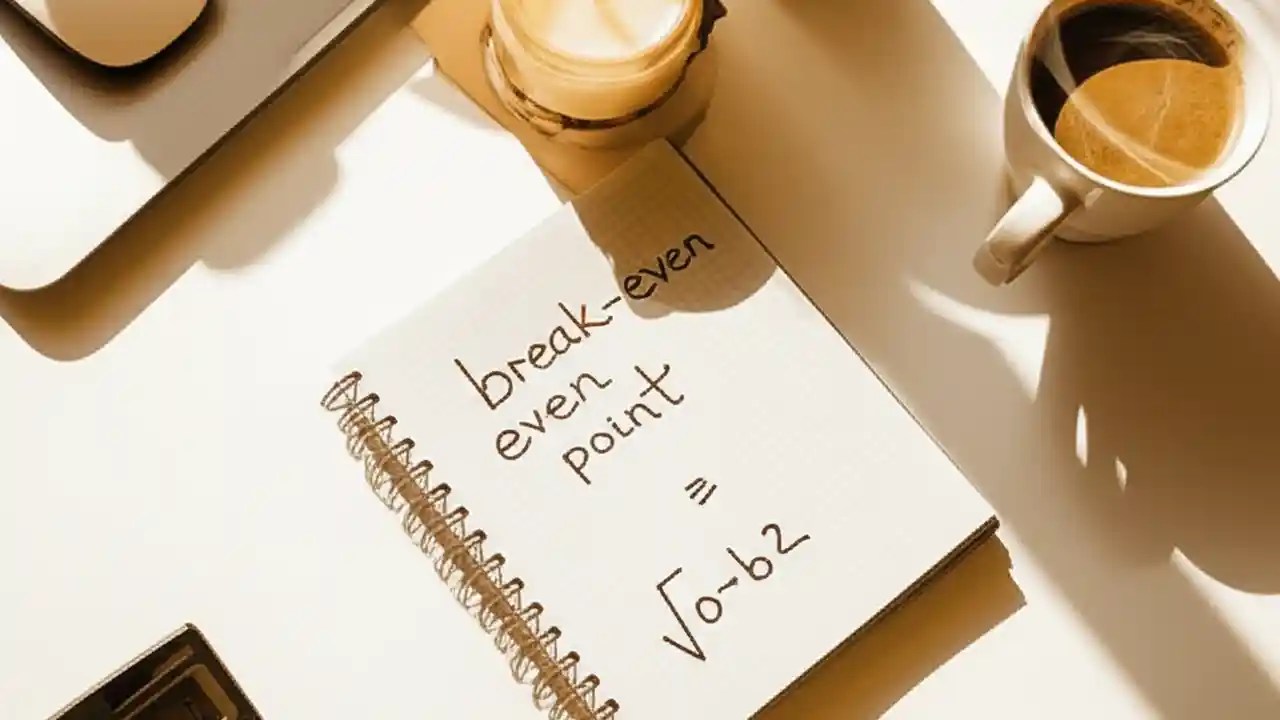 break-even
even
point
=
√o-b2